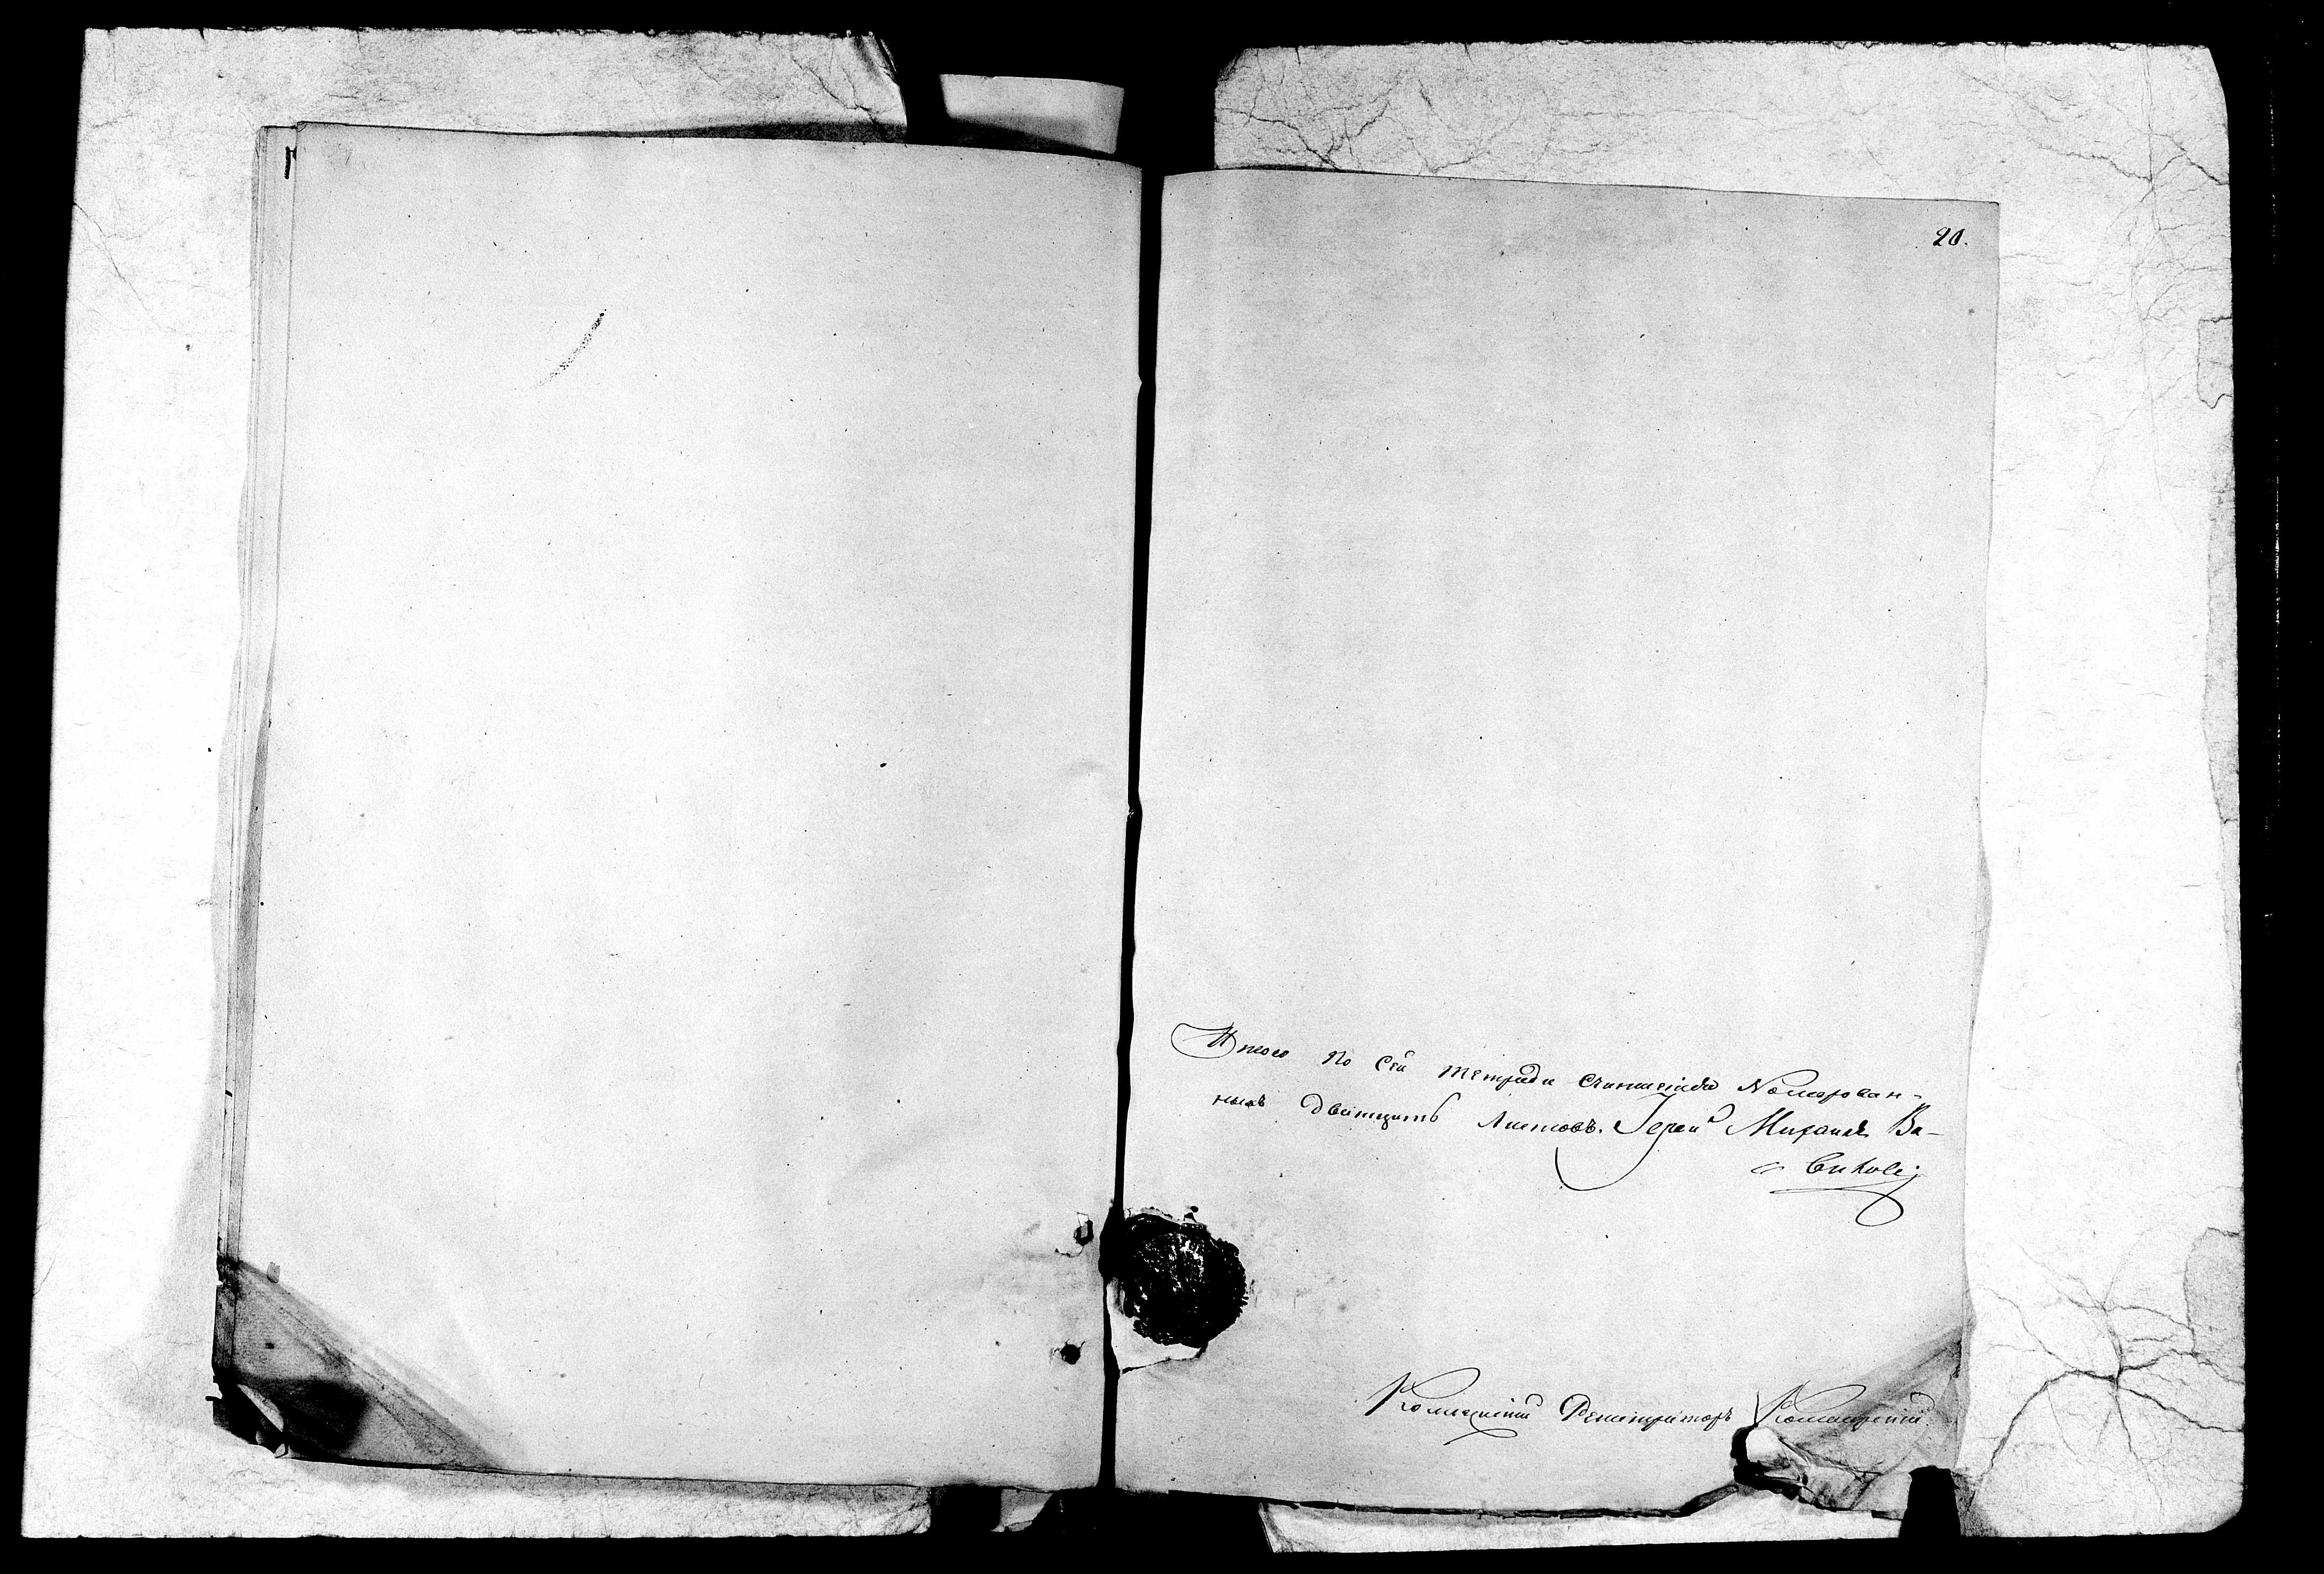 20.
Итого по сей тетради считается Номерован-
ныхъ дватцать листовъ. Іерей Михаилъ Ва-
силь
Коллежский Регистраторъ